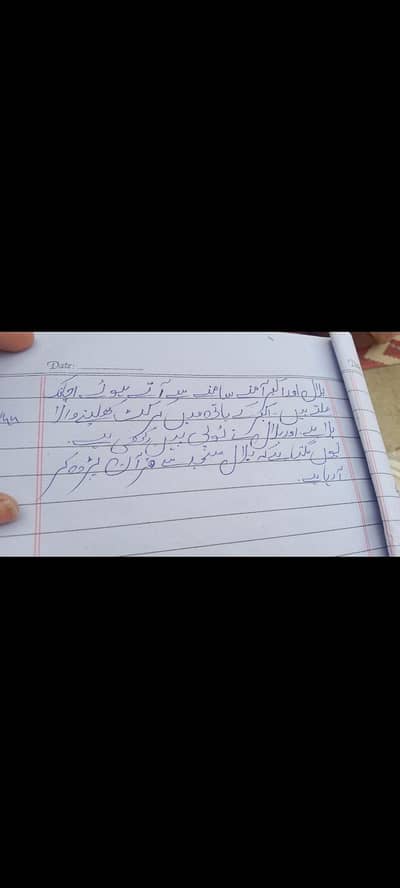 Date:
بلال اور اکبر آمنے سامنے سے آتے ہوئے اچانک
ملتے ہیں۔ اکبر کے ہاتھ میں کرکٹ کھیلنے والا
بلا ہے۔ اور بلال نے ٹوپی پہن رکھی ہے۔
یوں لگتا ہے کہ بلال مسجد سے قرآن پڑھ کر
آ رہا ہے۔